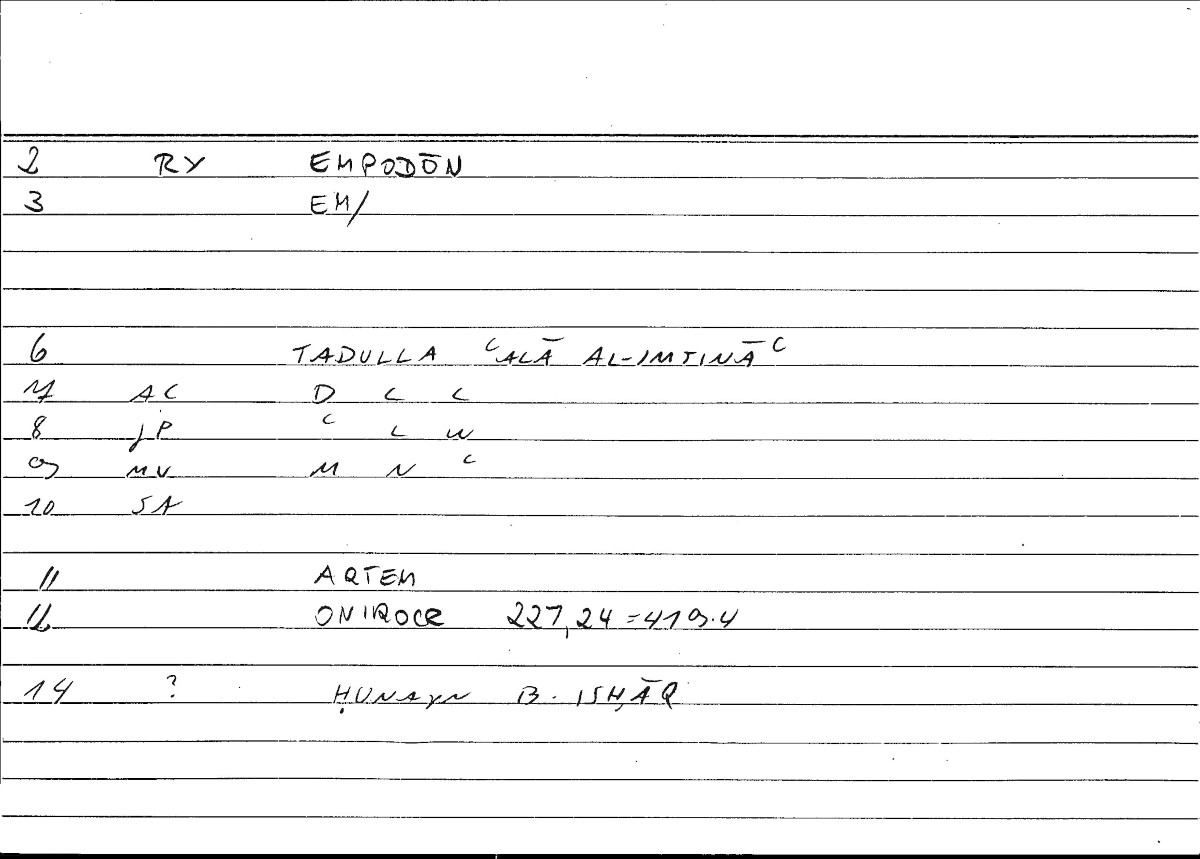 2 RY EMPODŌN
3 EM/
6 TADULLA ʿALĀ AL-IMTINĀʿ
7 AC D L L
8 JP ʿ L W
9 MV M N ʿ
10 SA
11 ARTEM
12 ONIROCR 227,24=419.4
14 ? ḤUNAYN B. ISḤĀQ